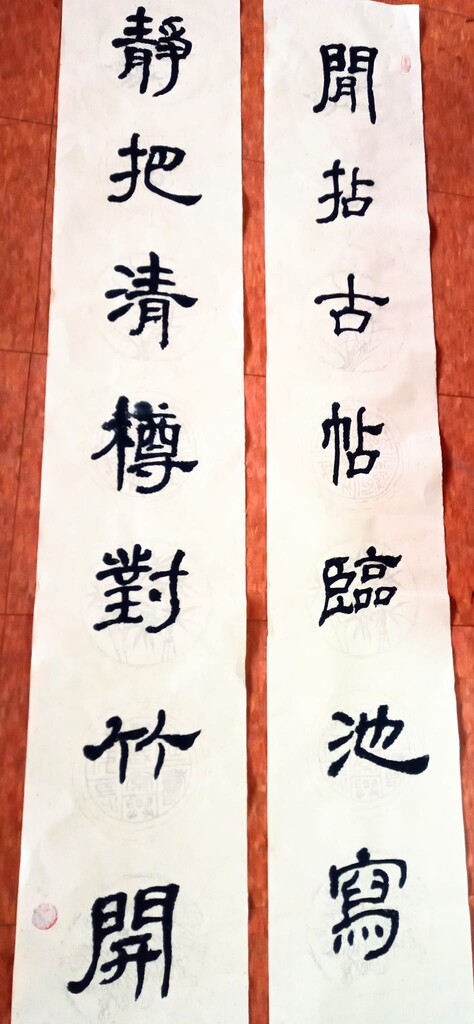 閒拈古帖臨池寫
靜把清樽對竹開